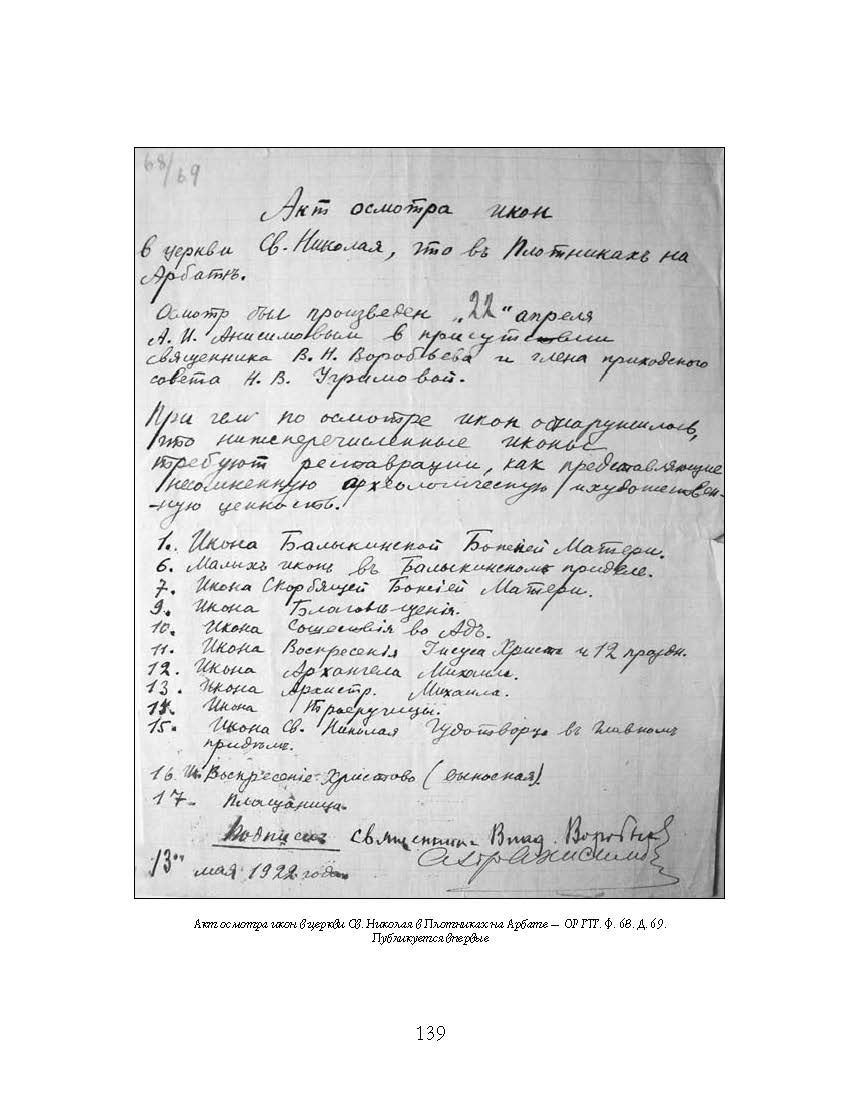 68/69
Акт осмотра икон
в церкви Св. Николая, что въ Плотникахъ на
Арбатѣ.
Осмотр был произведен „22" апреля
А. И. Анисимовым в присутствии
священника В. Н. Воробьева и члена приходского
совета Н. В. Угримовой.
При чем по осмотре икон обнаружилось,
что нижеперечисленные иконы
требуют реставрации, как представляющие
несомненную археологическую и художествен-
-ную ценность.
1. Икона Балыкинской Божией Матери.
6. Малыхъ иконъ въ Балыкинскомъ приделе.
7. Икона Скорбящей Божіей Матери.
9. Икона Благовѣщенія.
10. Икона Сошествія во Адъ.
11. Икона Воскресенія Іисуса Христа и 12 праздн.
12. Икона Архангела Михаила.
13. Икона Архистр. Михаила.
14. Икона Троеручицы.
15. Икона Св. Николая Чудотворца въ главномъ
придѣлѣ.
16. И. Воскресеніе Христово (выносная)
17. Плащаница.
Подписи священник Влад. Воробьев
Анисимов
13" мая 1922 года
Акт осмотра икон в церкви Св. Николая в Плотниках на Арбате — ОР ГТГ. Ф. 68. Д. 69.
Публикуется впервые
139